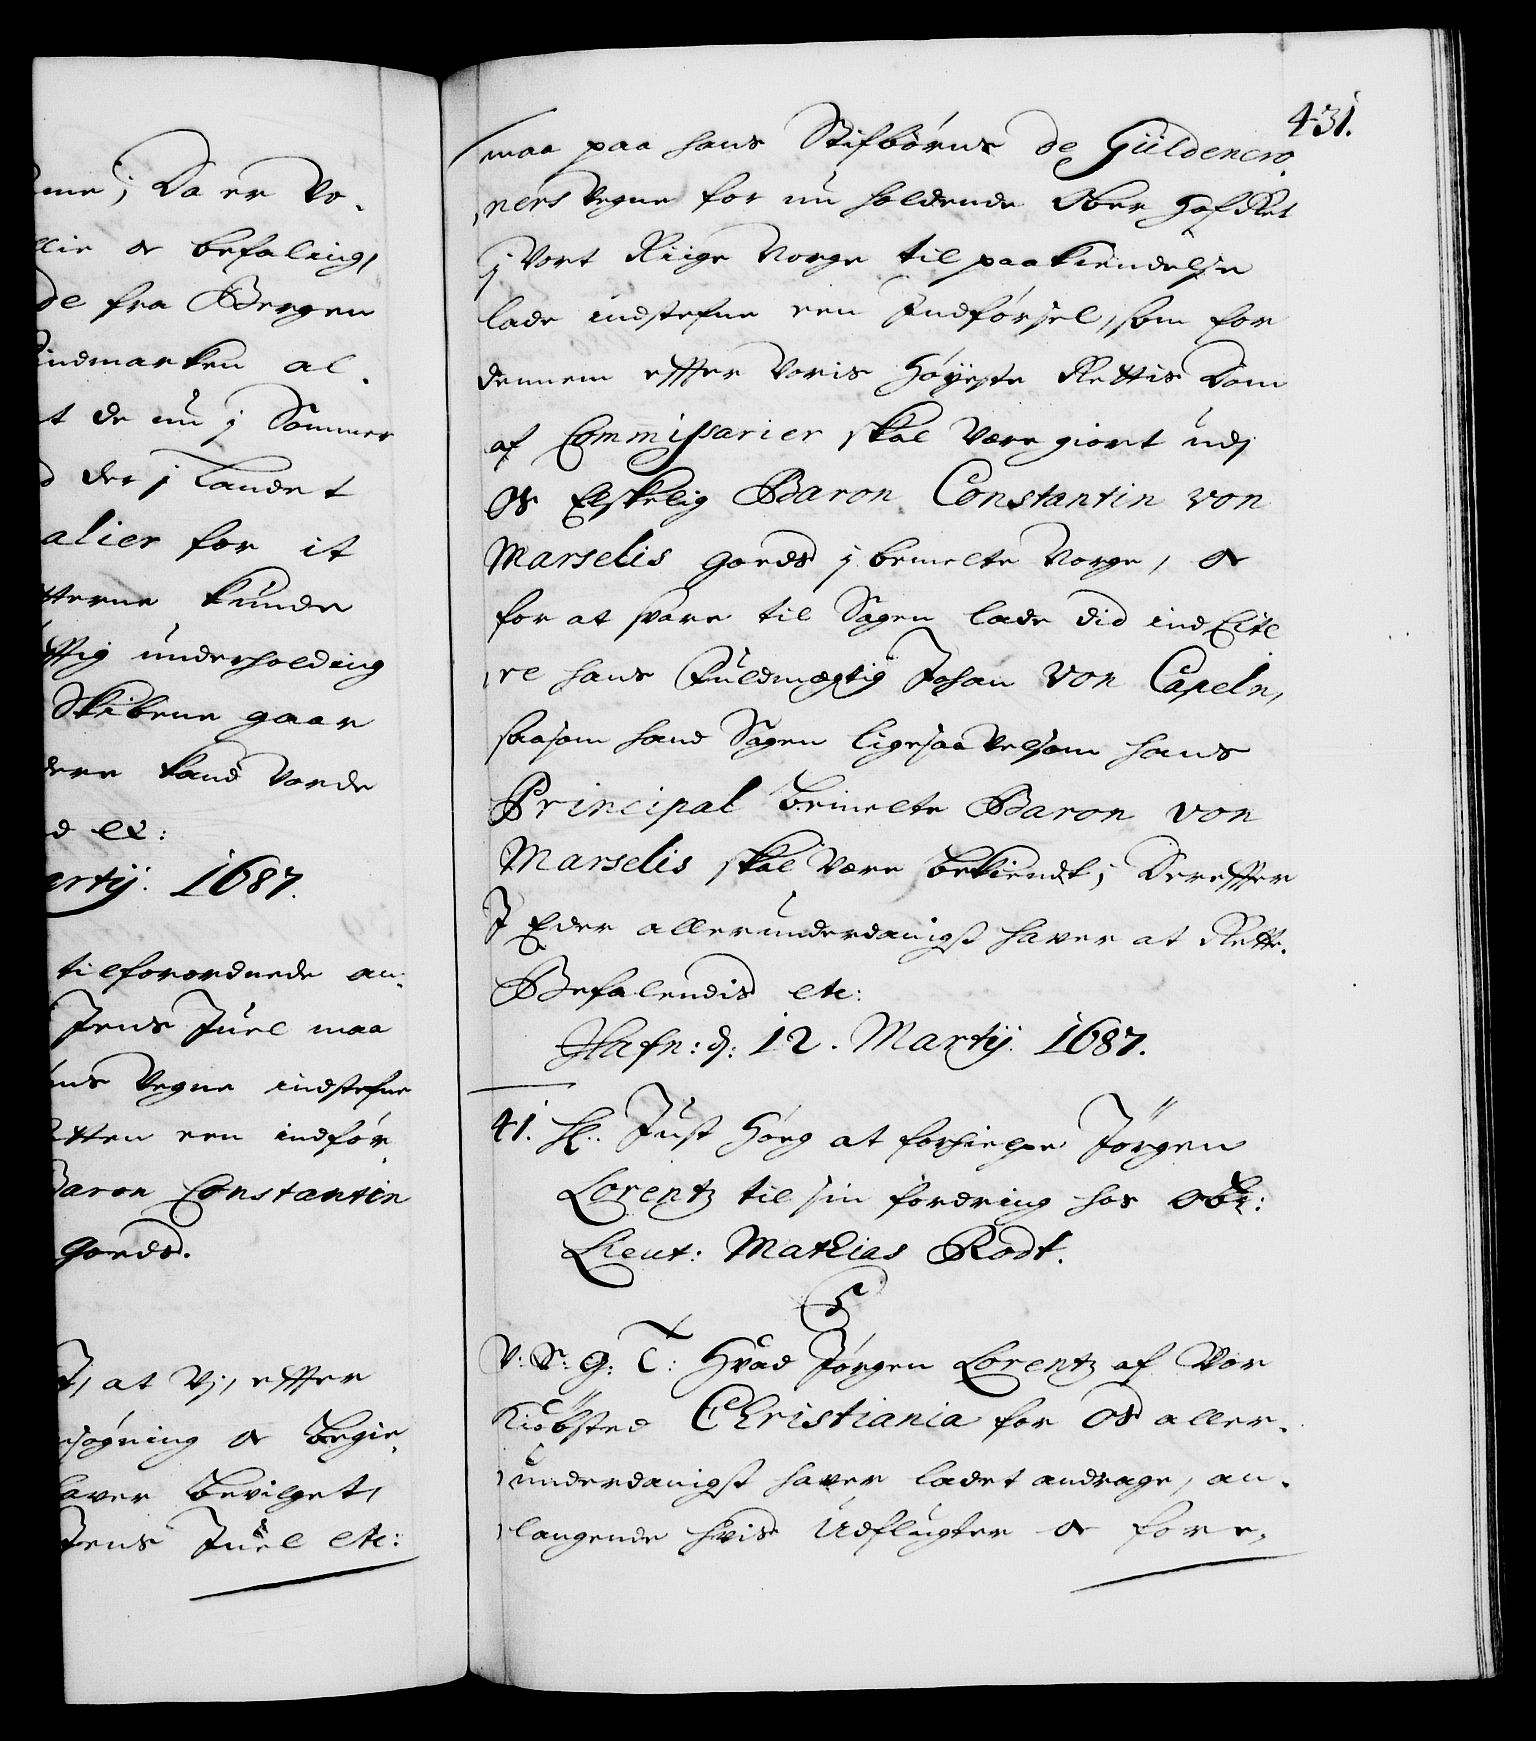 ome; Da er Vo-
llie oc befaling,
de fra Bergen
Findmarken al-
t de nu j Sommer
d der j Landet
alier for it
tterne kunde
ftig underholding
Skibene gaar
dere kand vorde
d etc:
artij. 1687.
tilforordnede an-
Jens Juel maa
ns Vegne indstefne
etten een indfør-
Baron Constantin
Goeds.
J, at Vj, effter
søgning oc Begie-
haver Bevilget,
Jens Juel etc:
431.
maa paa hans Stifbørns de Güldencro-
ners Vegne for nu holdende Ober Hof Ret
j Vort Riige Norge til paakiendelse
lade indstefne een Indførsel, som for
dennem effter Voris Høyeste Rettis Dom
af Commissarier skal være giort udj
Os Elskelig Baron Constantin von
Marselis goeds j bemelte Norge, oc
for at svare til Sagen lade did ind Cite-
re hans Fuldmægtig Johan von Capeln,
saasom hand Sagen ligesaa velsom hans
Principal bemelte Baron von
Marselis skal være bekiendt; Dereffter
I Eder allerunderdanigst haver at Rette.
Befalendis etc:
Hafn: d: 12. Martij. 1687.
41. Hr. Just Høeg at forhielpe Jørgen
Lorentz til sin fordring hos Obr:
Lieut: Mathias Rodt.
C5
V: S: G: T: Hvad Jørgen Lorentz af Vor
Kiøbsted Christiania for Os aller-
underdanigst haver ladet andrage, an-
langende hvis Udflugter oc fore-